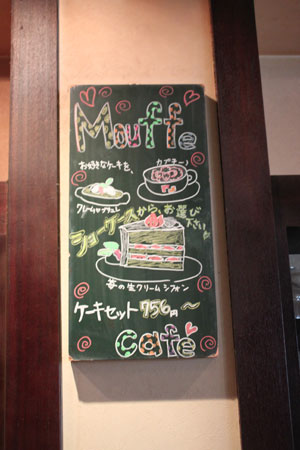 Mouffe
お好きなケーキを、
カプチーノ
クレームブリュレ
ショーケースから、お選び
下さい!
苺の生クリームシフォン
ケーキセット 756円〜
cafe